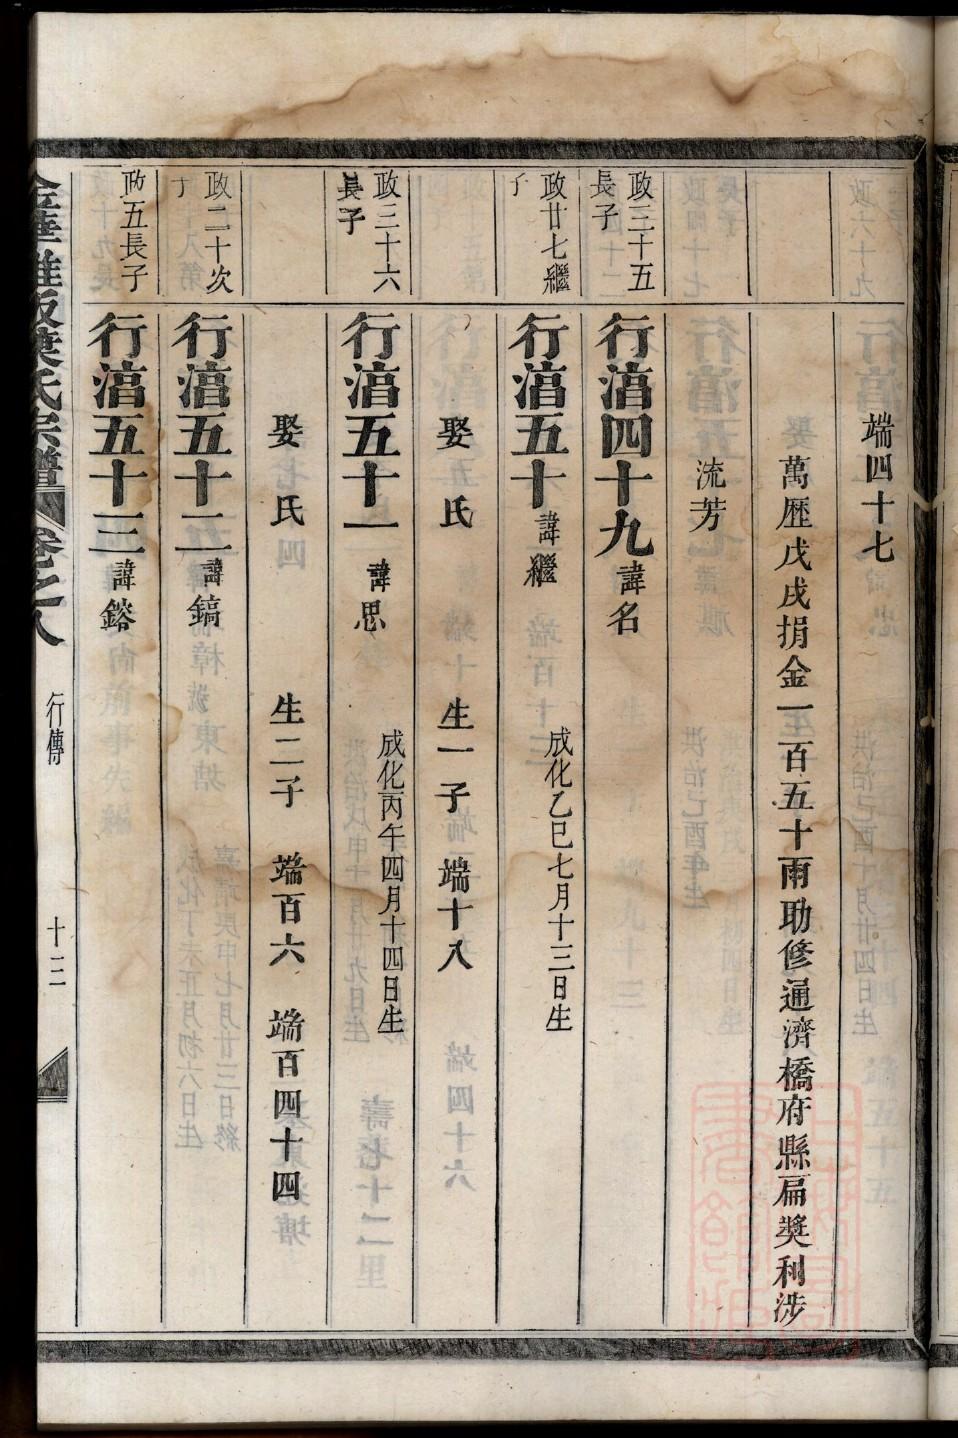 端四十七
萬歷戊戌捐金一百五十兩助修通濟橋府縣扁奬利涉
流芳
政三十五長子
行湻四十九 諱名
政廿七繼子
行湻五十 諱繼 成化乙巳七月十三日生
娶 氏 生一子 端十八
政三十六長子
行湻五十一 諱思 成化丙午四月十四日生
娶 氏 生二子 端百六 端百四十四
政二十次子
行湻五十二 諱鎬
政五長子
行湻五十三 諱鎔
葉氏宗譜 卷之八 行傳 十三